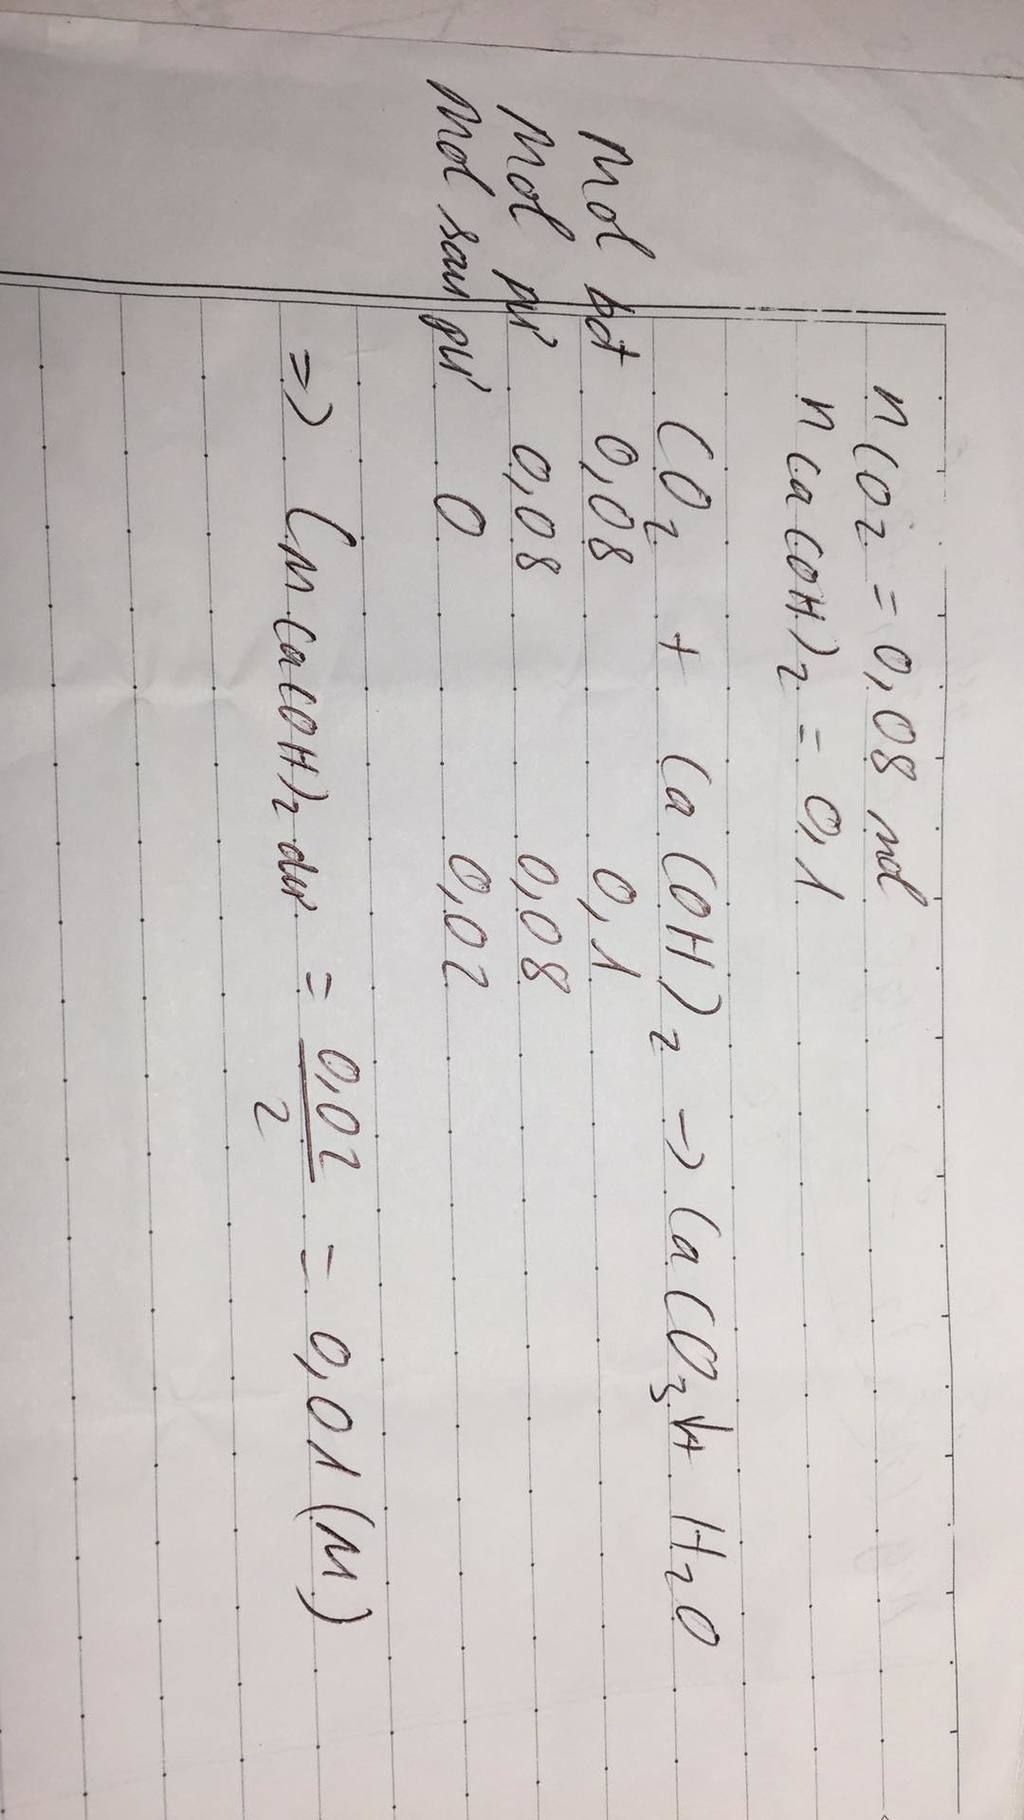 n CO2 = 0,08 mol
n Ca(OH)2 = 0,1
CO2 + Ca(OH)2 -> CaCO3↓ + H2O
Mol bđ 0,08 0,1
Mol pư 0,08 0,08
Mol sau pư 0 0,02
=> CM Ca(OH)2 dư = 0,02/2 = 0,01 (M)